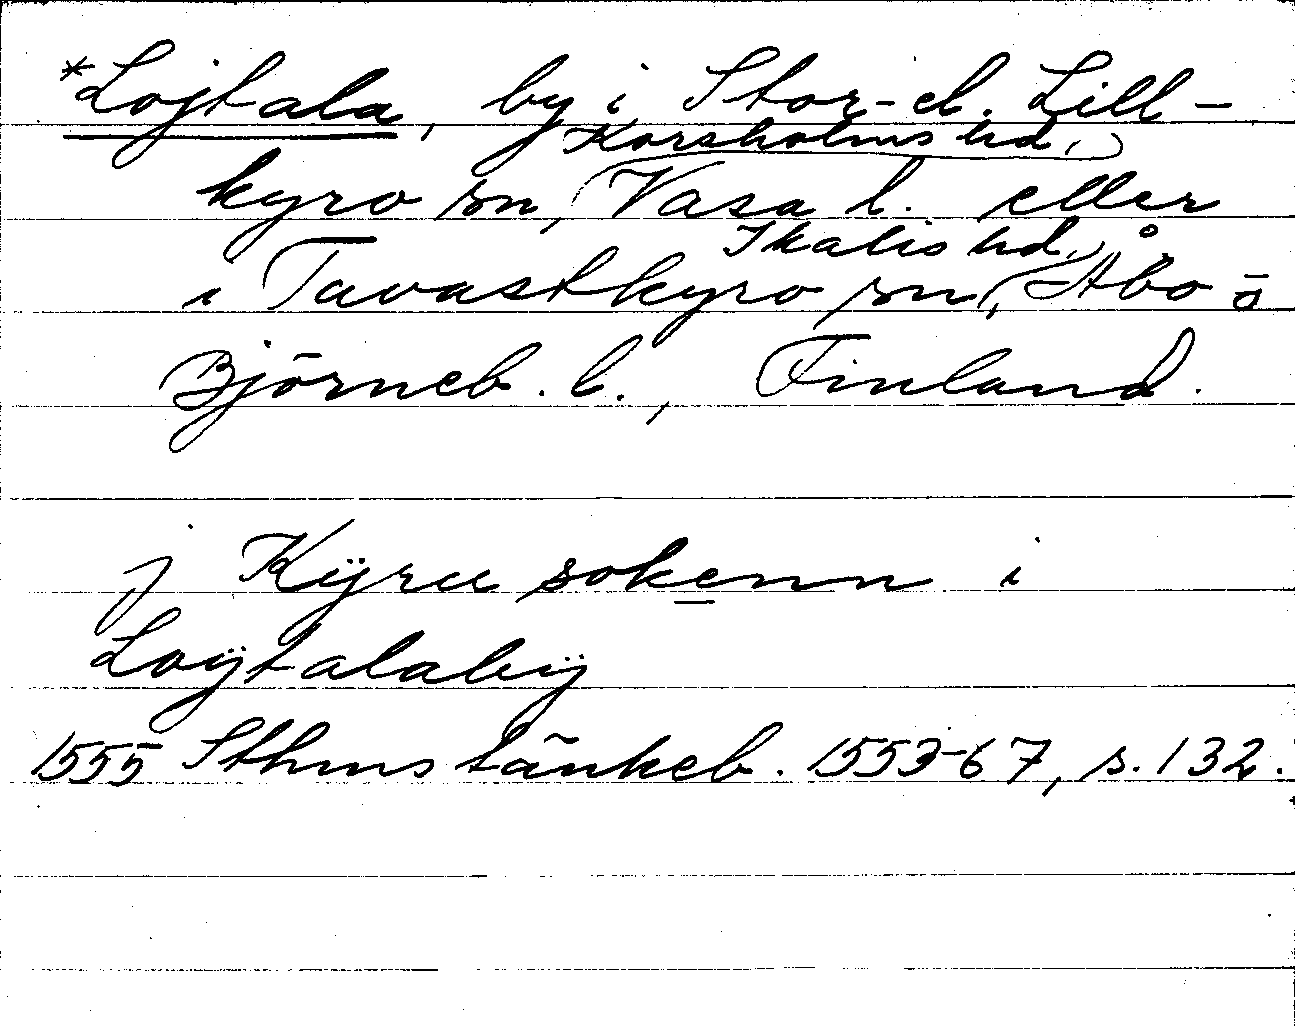 *Lojtala, by i Stor- el. Lill-
Korsholms hd,
kyro sn, Vasa l. eller
Ikalis hd,
i Tavastkyro sn, Åbo o
Björneb. l., Finland.
j Kÿru sokenn i
Loÿtalabÿ
1555 Sthms tänkeb. 1553-67, s. 132.